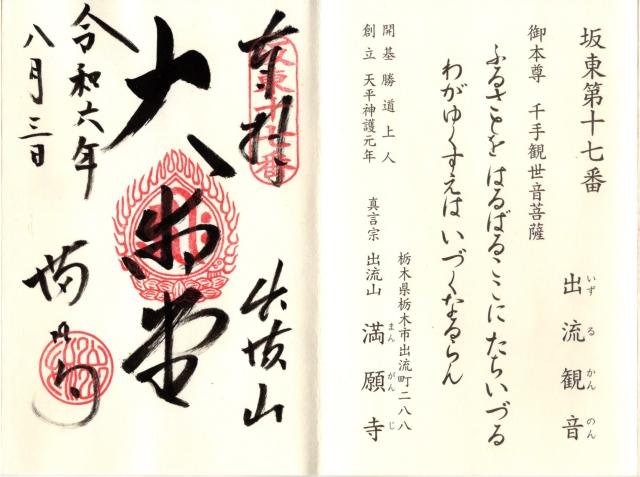 坂東第十七番
出流観音
いずるかんのん
御本尊 千手観世音菩薩
ふるさとをはるばるここにたちいづる
わがゆくすえはいづくなるらん
開基 勝道上人
創立 天平神護元年
栃木県栃木市出流町二八八
真言宗 出流山 満願寺
まんがんじ
奉拝
坂東十七番
出流山
大悲堂
令和六年
八月三日
満願寺